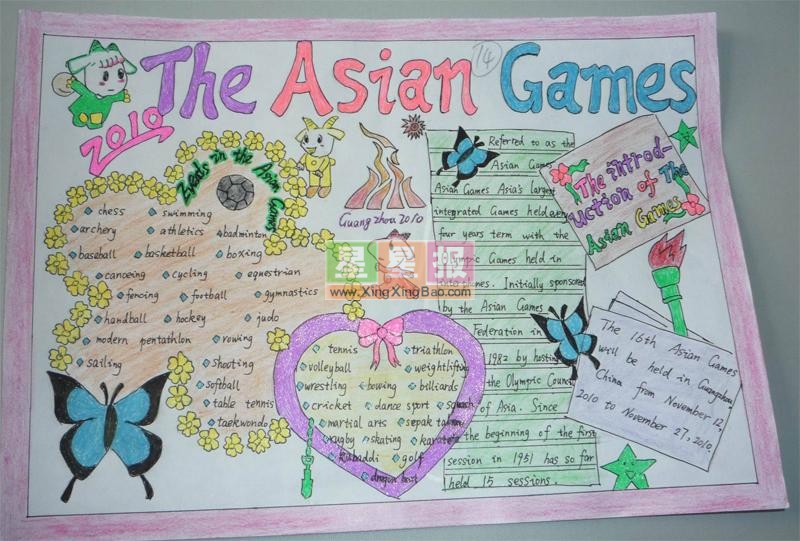 The Asian Games
14
2010
Events in the Asian Games
chess swimming
archery athletics badminton
baseball basketball boxing
canoeing cycling equestrian
fencing football gymnastics
handball hockey judo
modern pentathlon rowing
sailing shooting
softball
table tennis
taekwondo
Guangzhou 2010
星星报
www.XingXingBao.com
tennis triathlon
volleyball weightlifting
wrestling bowing billiards
cricket dance sport squash
martial arts sepak takraw
rugby skating karate
kabaddi golf
dragon boat
Referred to as the
Asian Games
Asian Games Asia's largest
integrated Games held every
four years term with the
Olympic Games held in
phones. Initially sponsored
by the Asian Games
Federation in
1982 by hosting
the Olympic Council
of Asia. Since
the beginning of the first
session in 1951 has so far
held 15 sessions.
The introd-
uction of The
Asian Games
The 16th Asian Games
will be held in Guangzhou,
China from November 12,
2010 to November 27, 2010.